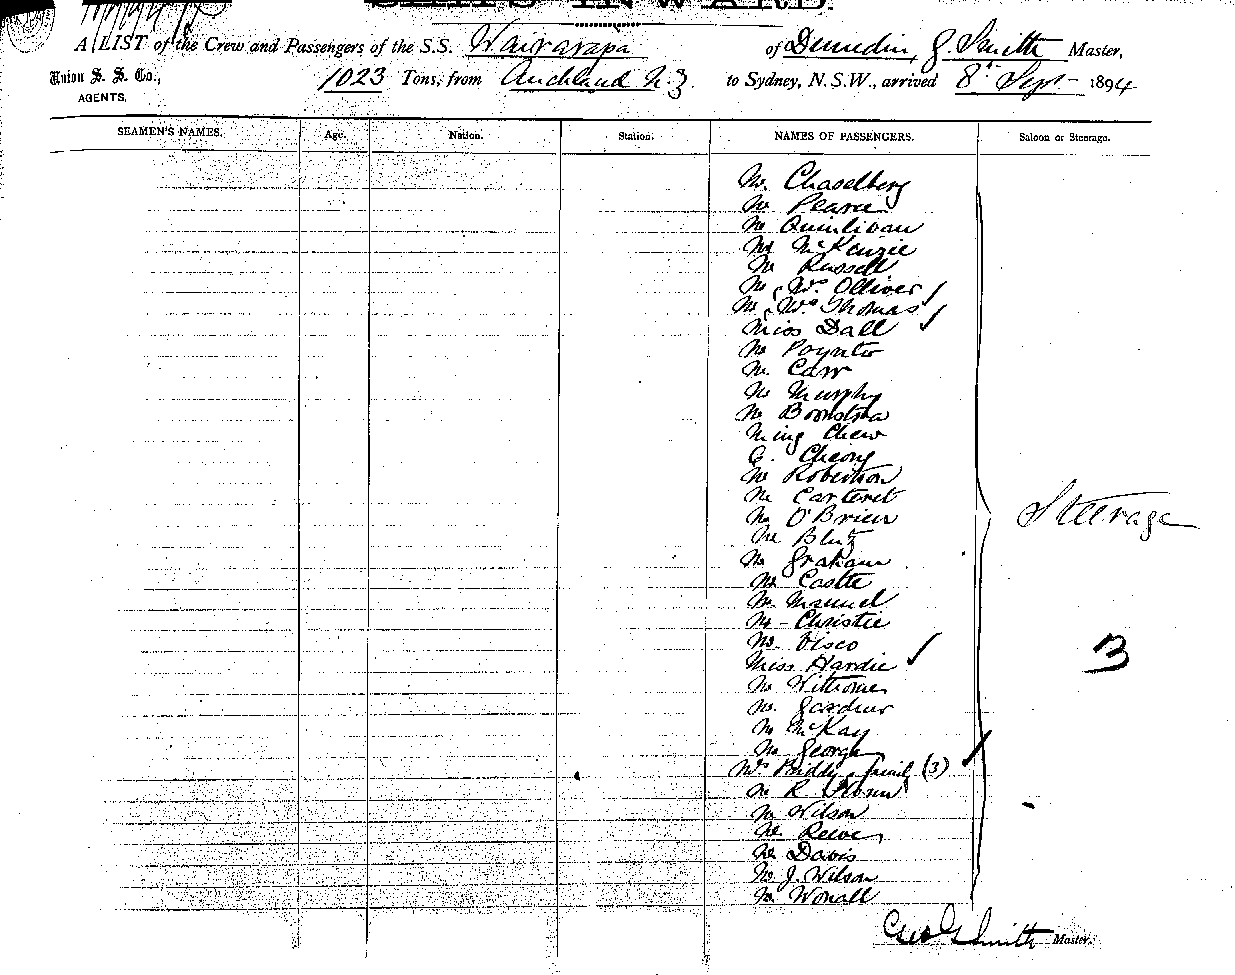 SHIPS INWARD.
A LIST of the Crew and Passengers of the S.S. Wairarapa of Dunedin, J. Smith Master,
Union S. S. Co., AGENTS, 1023 Tons, from Auckland N.Z. to Sydney, N.S.W., arrived 8th Sept 1894
SEAMEN'S NAMES. Age. Nation. Station. NAMES OF PASSENGERS. Saloon or Steerage.
Mr. Chaselberg
Mr Pearce
Mr Quinlivan
Mr McKenzie
Mr Russell
Mr, Mrs Olliver
Mr, Mrs Thomas
Miss Dall
Mr Poynter
Mr. Carr
Mr Murphy
Mr Boonstra
Ming Chew
G. Cheong
Mr Robertson
Mr Carteret
Mr O'Brien Steerage
Mr Blutz
Mr Graham
Mr Castle
Mr Maunel
Mr Christie
Mr. Visco 3
Miss Hardie
Mr
Mr. Gardner
Mr McKay
Mr George
Mrs Priddy (3)
Mr R
Mr Wilson
Mr Reeve
Mr Davis
Mr J. Wilson
Mr. Worrall
Smith Master.